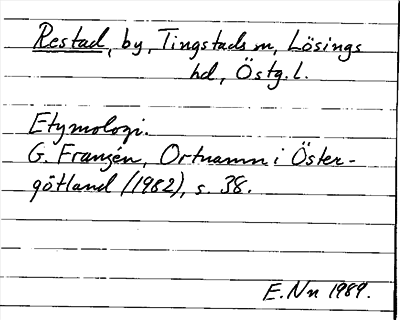 Restad, by, Tingstads sn, Lösings
hd, Östg. l.
Etymologi.
G. Franzén, Ortnamn i Öster-
götland (1982), s. 38.
E. Nn 1989.